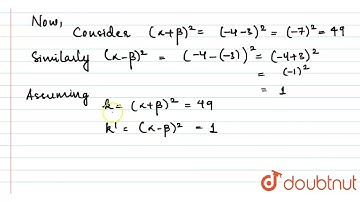 Now,
Consider (α+β)² = (-4-3)² = (-7)² = 49
Similarly (α-β)² = (-4-(-3))² = (-4+3)²
= (-1)²
= 1
Assuming
k = (α+β)² = 49
k' = (α-β)² = 1
doubtnut